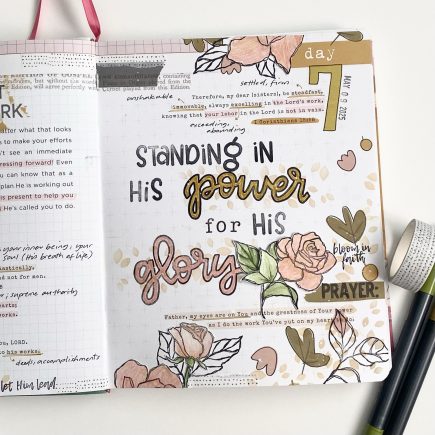 RK
after what that looks
to make your efforts
n't see an immediate
ressing forward! Even
you can know that as a
plan He is working out
is present to help you
He's called you to do.
your inner being; your
soul (His breath of life)
astically,
nd not for men.
supreme authority
hearts;
works.
you, LORD.
to his works.
deeds, accomplishments
let Him lead.
day
7
MAY 09 2025
settled, firm
unshakable
Therefore, my dear (sisters), be steadfast,
immovable, always excelling in the Lord's work,
knowing that your labor in the Lord is not in vain.
1 Corinthians 15:58
exceeding,
abounding
STANDING IN
HIS power
for HIS
glory
bloom in
faith
PRAYER:
Father, my eyes are on You and the greatness of Your power
as I do the work You've put on my heart